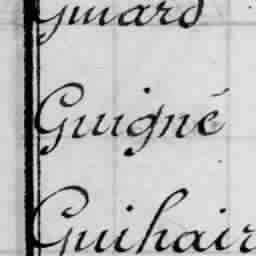 Guiard
Guigné
Guihair